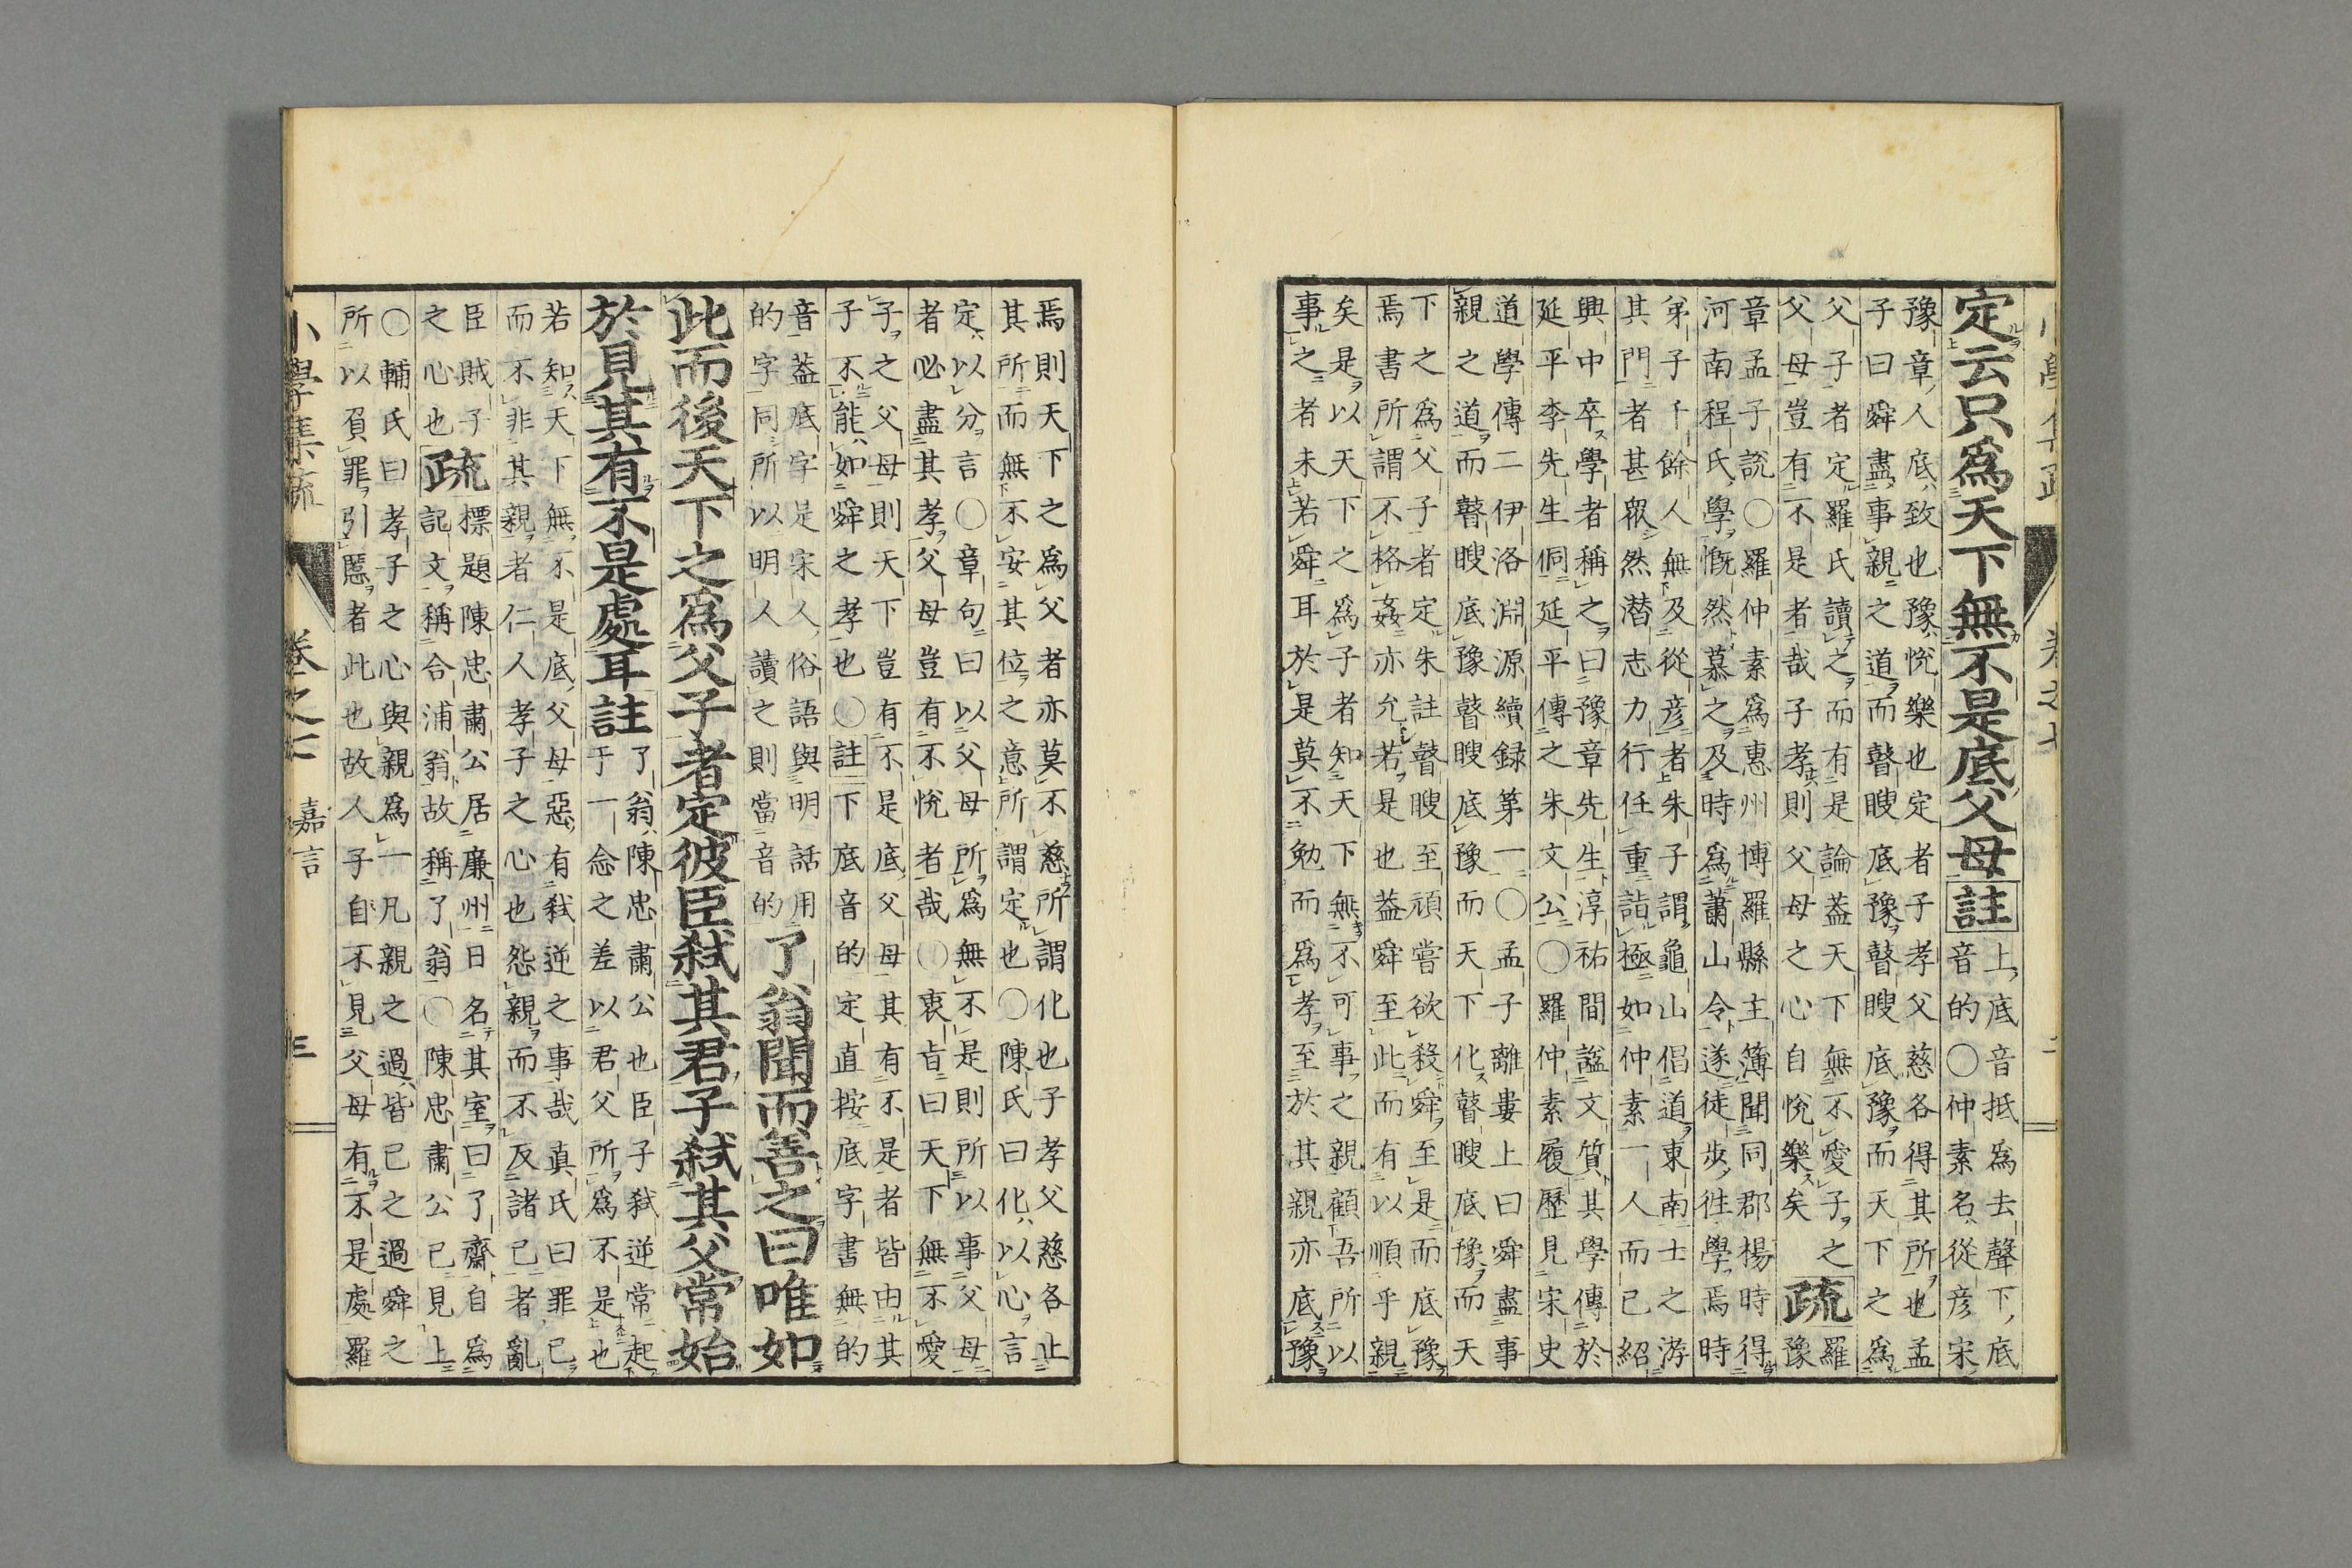 定云只爲天下無不是底父母註
上底音抵爲去聲下底
音的〇仲素名從彦宋
豫章人底致也豫悅樂也定者子孝父慈各得其所也孟
子曰舜盡事親之道而瞽瞍底豫瞽瞍底豫而天下之爲
父子者定羅氏讀之而有是論蓋天下無不愛子之
父母豈有不是者哉子孝則父母之心自悅樂矣
疏
羅
豫
章孟子說〇羅仲素爲惠州博羅縣主簿聞同郡楊時得
河南程氏學慨然慕之及時爲蕭山令遂徒步徃學焉時
弟子千餘人無及從彦者朱子謂龜山倡道東南士之游
其門者甚衆然潜志力行任重詣極如仲素一人而已紹
興中卒學者稱之曰豫章先生淳祐間謚文質其學傳於
延平李先生侗延平傳之朱文公〇羅仲素履歷見宋史
道學傳二伊洛淵源續録第一〇孟子離婁上曰舜盡事
親之道而瞽瞍底豫瞽瞍底豫而天下化瞽瞍底豫而天
下之爲父子者定朱註瞽瞍至頑嘗欲殺舜至是而底豫
焉書所謂不格姦亦允若是也蓋舜至此而有以順乎親
矣是以天下之爲子者知天下無不可事之親顧吾所以
事之者未若舜耳於是莫不勉而爲孝至於其親亦底豫
焉則天下之爲父者亦莫不慈所謂化也子孝父慈各止
其所而無不安其位之意所謂定也〇陳氏曰化以心言
定以分言〇章句曰以父母所爲無不是則所以事父母
者必盡其孝父母豈有不悅者哉〇衷旨曰天下無不愛
子之父母則天下豈有不是底父母其有不是者皆由其
子不能如舜之孝也〇註下底音的定直按底字書無的
音蓋底字是宋人俗語與明話用
的字同所以明人讀之則當音的
了翁聞而善之曰唯如
此而後天下之爲父子者定彼臣弑其君子弑其父常始
於見其有不是處耳註
了翁陳忠肅公也臣子弑逆常起
于一念之差以君父所爲不是也
若知天下無不是底父母惡有弑逆之事哉真氏曰罪己
而不非其親者仁人孝子之心也怨親而不反諸己者亂
臣賊子
之心也
疏
標題陳忠肅公居廉州日名其室曰了齋自爲
記文稱合浦翁故稱了翁〇陳忠肅公已見上
〇輔氏曰孝子之心與親爲一凡親之過皆己之過舜之
所以負罪引慝者此也故人子自不見父母有不是處羅
小學集疏 卷之七 嘉言 三